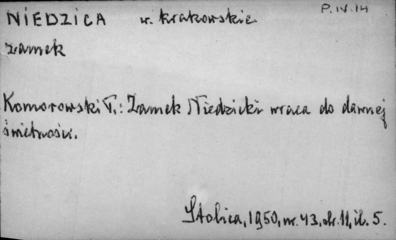 NIEDZICA w. krakowskie P.IV.14
zamek
Komorowski T.: Zamek Niedzicki wraca do dawnej
świetności.
Stolica, 1950, nr. 43, str. 11, il. 5.